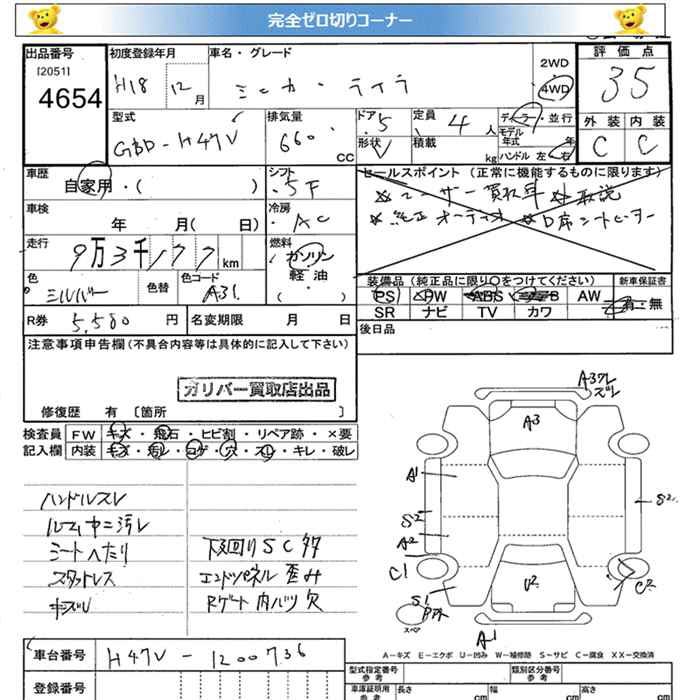 完全ゼロ切りコーナー
出品番号 初度登録年月 車名・グレード 2WD 評価点
[2051] H18 12月 ミニカ・ライラ 4WD 35
4654
型式 排気量 ドア 定員 ディーラー・並行 外装 内装
GBD-H47V 660 CC 5 4人 モデル年式 年 C C
形状 V 積載 kg ハンドル 左・右
車歴 シフト セールスポイント(正常に機能するものに限ります)
自家用・( ) 5F ユーザー買取車 取説
車検 冷房 純正オーディオ D席シートヒーター
年 月(日) AC
走行 燃料
9万3千177km ガソリン
色 色替 色コード 軽・油 装備品(純正品に限り○をつけてください) 新車保証書
シルバー A31 ( ) PS PW ABS AW 有・無
SR ナビ TV カワ
R券 5,580円 名変期限 月 日 後日品
注意事項申告欄(不具合内容等は具体的に記入して下さい)
ガリバー買取店出品
修復歴 有 [箇所 ]
検査員 FW キズ・飛石・ヒビ割・リペア跡・×要
記入欄 内装 キズ・汚レ・コゲ・穴・スレ・キレ・破レ
A3ワレ
ズレ
A3
A1
S2
S2
A2
C1
C2
U2
S1
スペア
A1
ハンドルスレ
ルーム中ニ汚レ
シートヘタリ 下回りSC多
スタットレス エンドパネル歪み
キズル Rゲート内バリ欠
A-キズ E-エクボ U-凹み W-補修跡 S-サビ C-腐食 XX-交換済
車台番号 H47V-1200736
型式指定番号 類別区分番号
参考 参考
登録番号 車庫証明用 長さ 幅 高さ
参考 cm cm cm